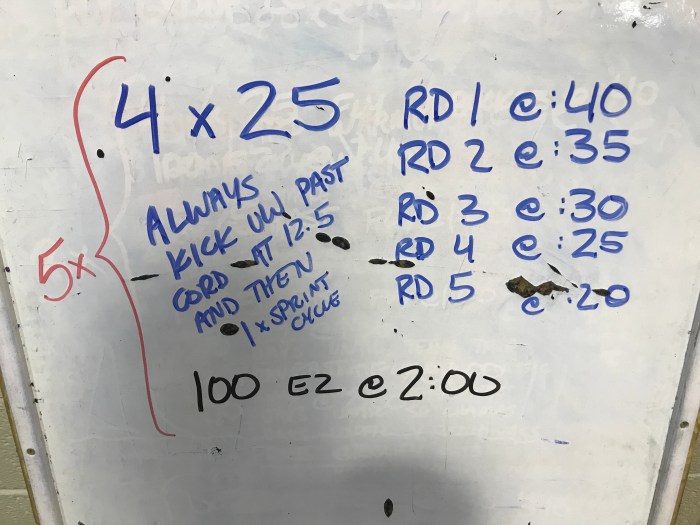 5x
4 x 25
ALWAYS
KICK UW PAST
CORD AT 12.5
AND THEN
1 x SPRINT
CYCLE
RD 1 @ :40
RD 2 @ :35
RD 3 @ :30
RD 4 @ :25
RD 5 @ :20
100 EZ @ 2:00